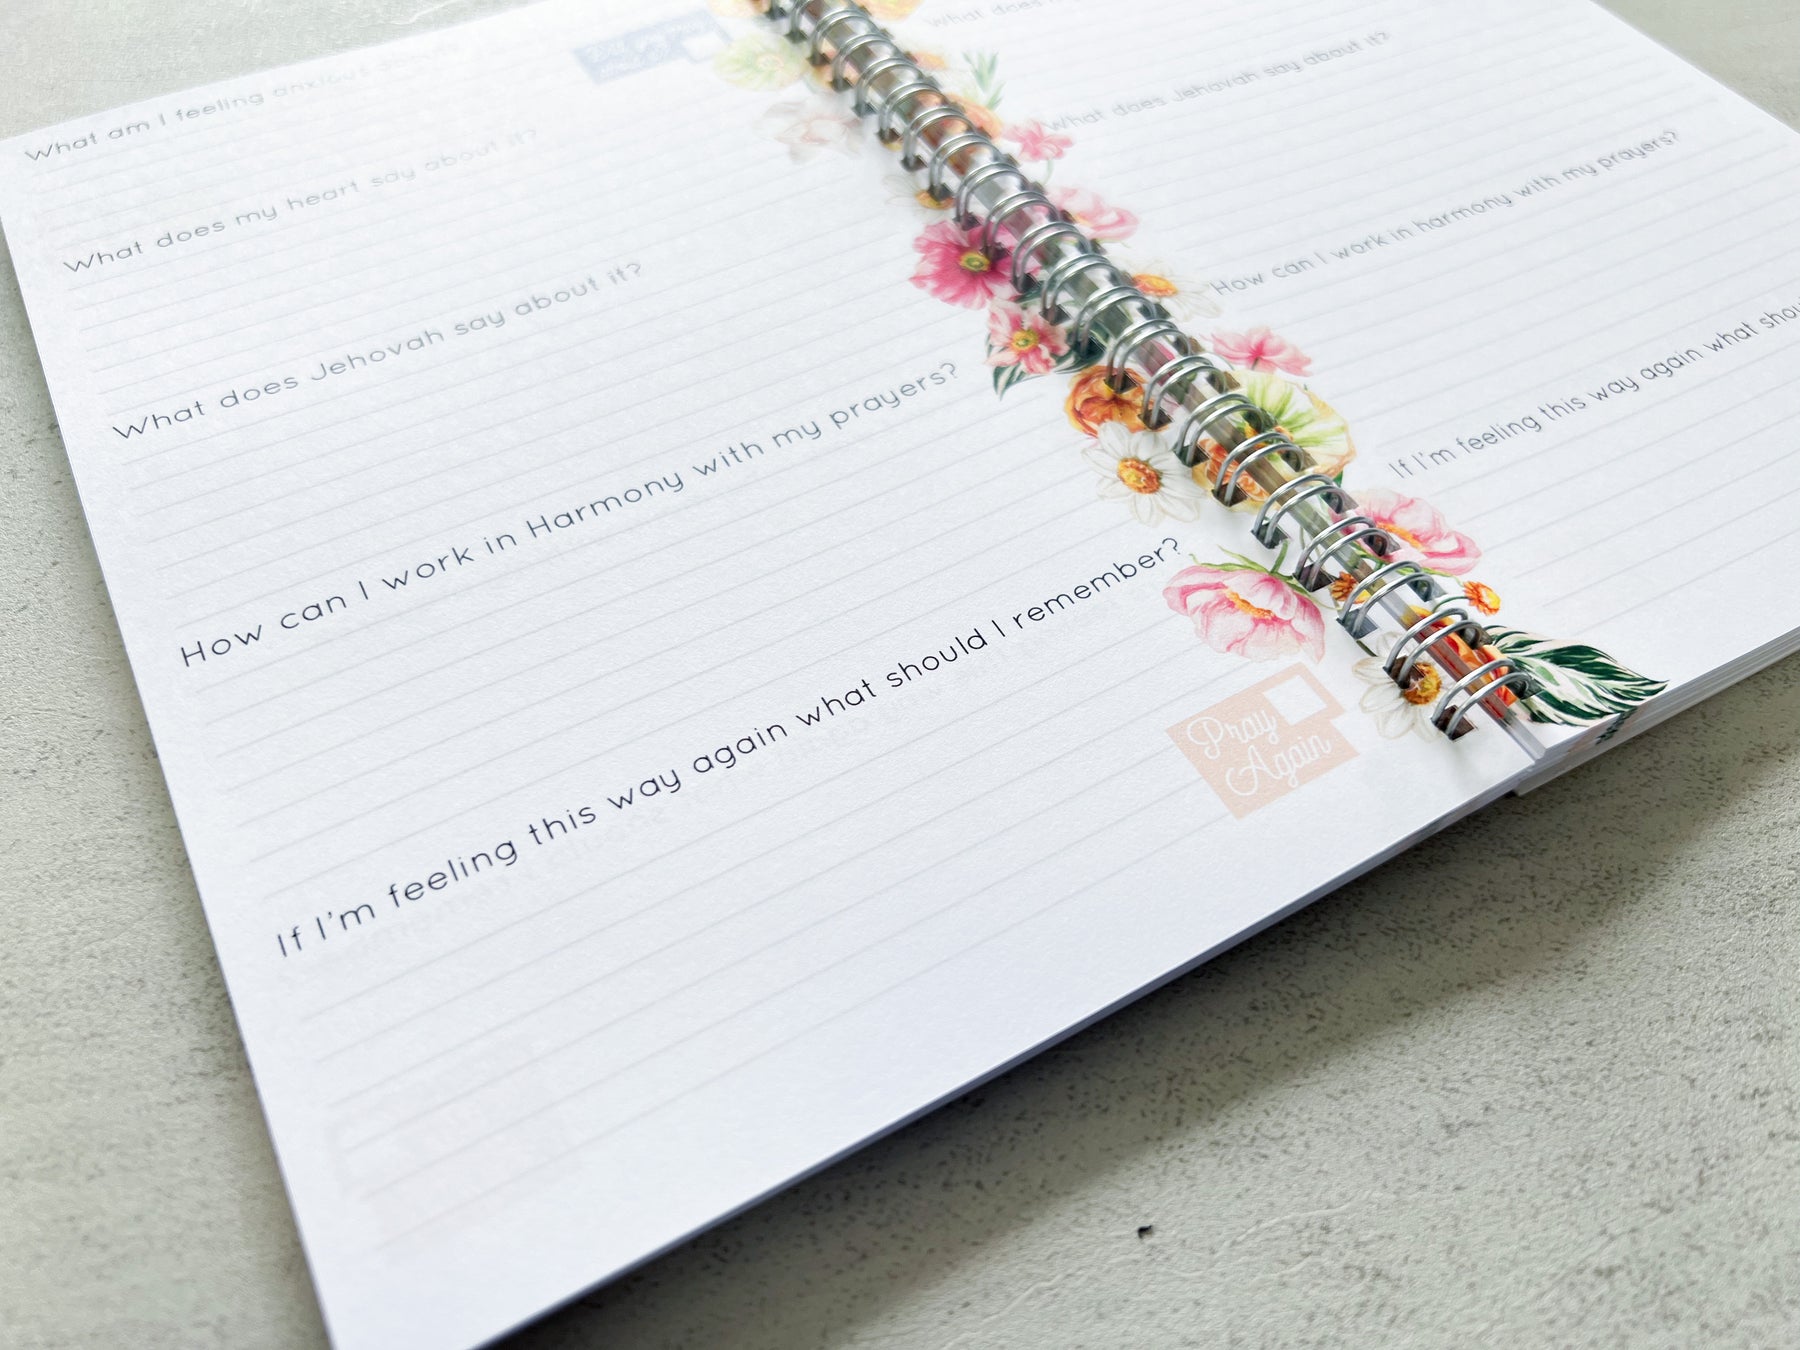 What am I feeling anxious about?
What does my heart say about it?
What does Jehovah say about it?
How can I work in Harmony with my prayers?
If I'm feeling this way again what should I remember?
Pray
Again
What does
What does Jehovah say about it?
How can I work in harmony with my prayers?
If I'm feeling this way again what